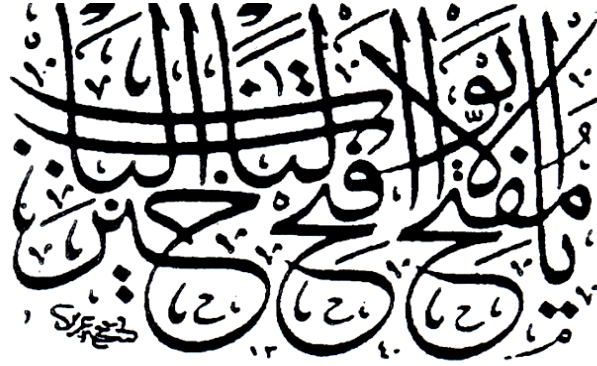 يا مفتح الابواب افتح لنا خير الباب
١٣٤٠